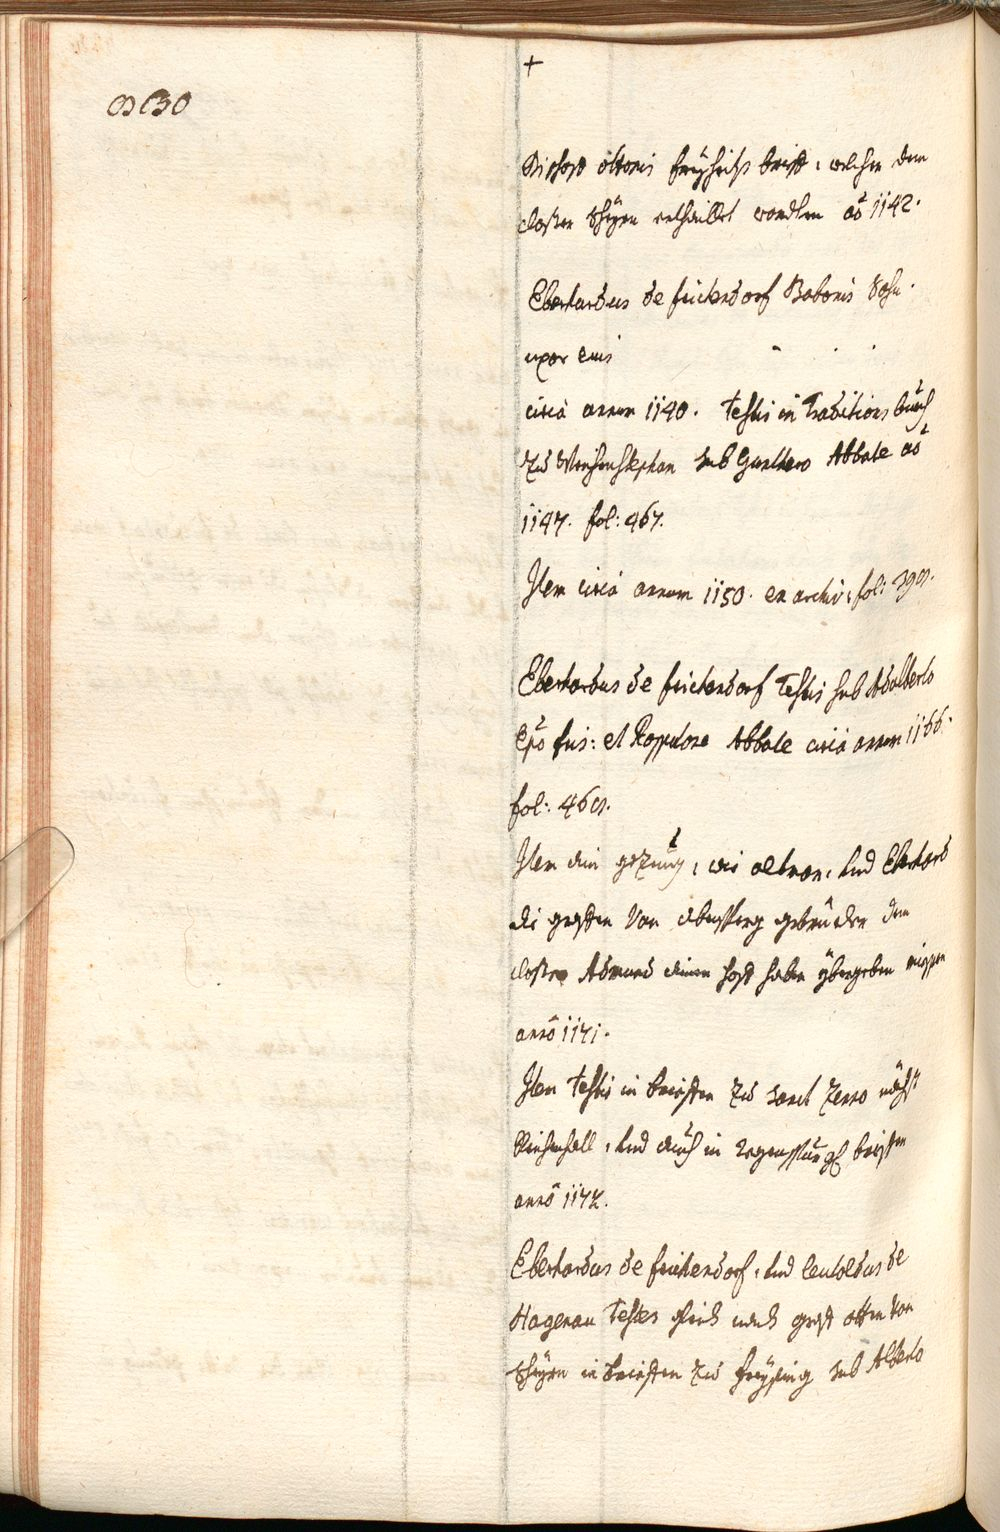 +
Bischof Ottonis freyheits brieff, welcher dem
closter Scheyrn erthaillet worden ao 1142.
Eberhardus de frickendorf Babonis Sohn.
uxor eius
circa annum 1140. Testis in Traditions buech
zu Weichenstephan sub Gualtero Abbate ao
1147. fol: 467.
Item circa annum 1150. ex archiv: fol:
Eberhardus de frickendorf Testis sub Adalberto
Epo fris: et Abbate circa annum 1166.
fol:
Item ein gezeug, wie altman, und Eberhard
die graffen von abensperg gebrüeder dem
closter Admund einen hoff haben ybergeben
anno 1171.
Item Testis in brieffen zu sanct Zenno nächst
Reichenhall, und auch in regenspurg brieffen
anno 1172.
Eberhardus de frickendorf, und leutoldus de
Hagenau Testes gleich nach graff otten von
Scheyrn in brieffen zu freysing sub Alberto